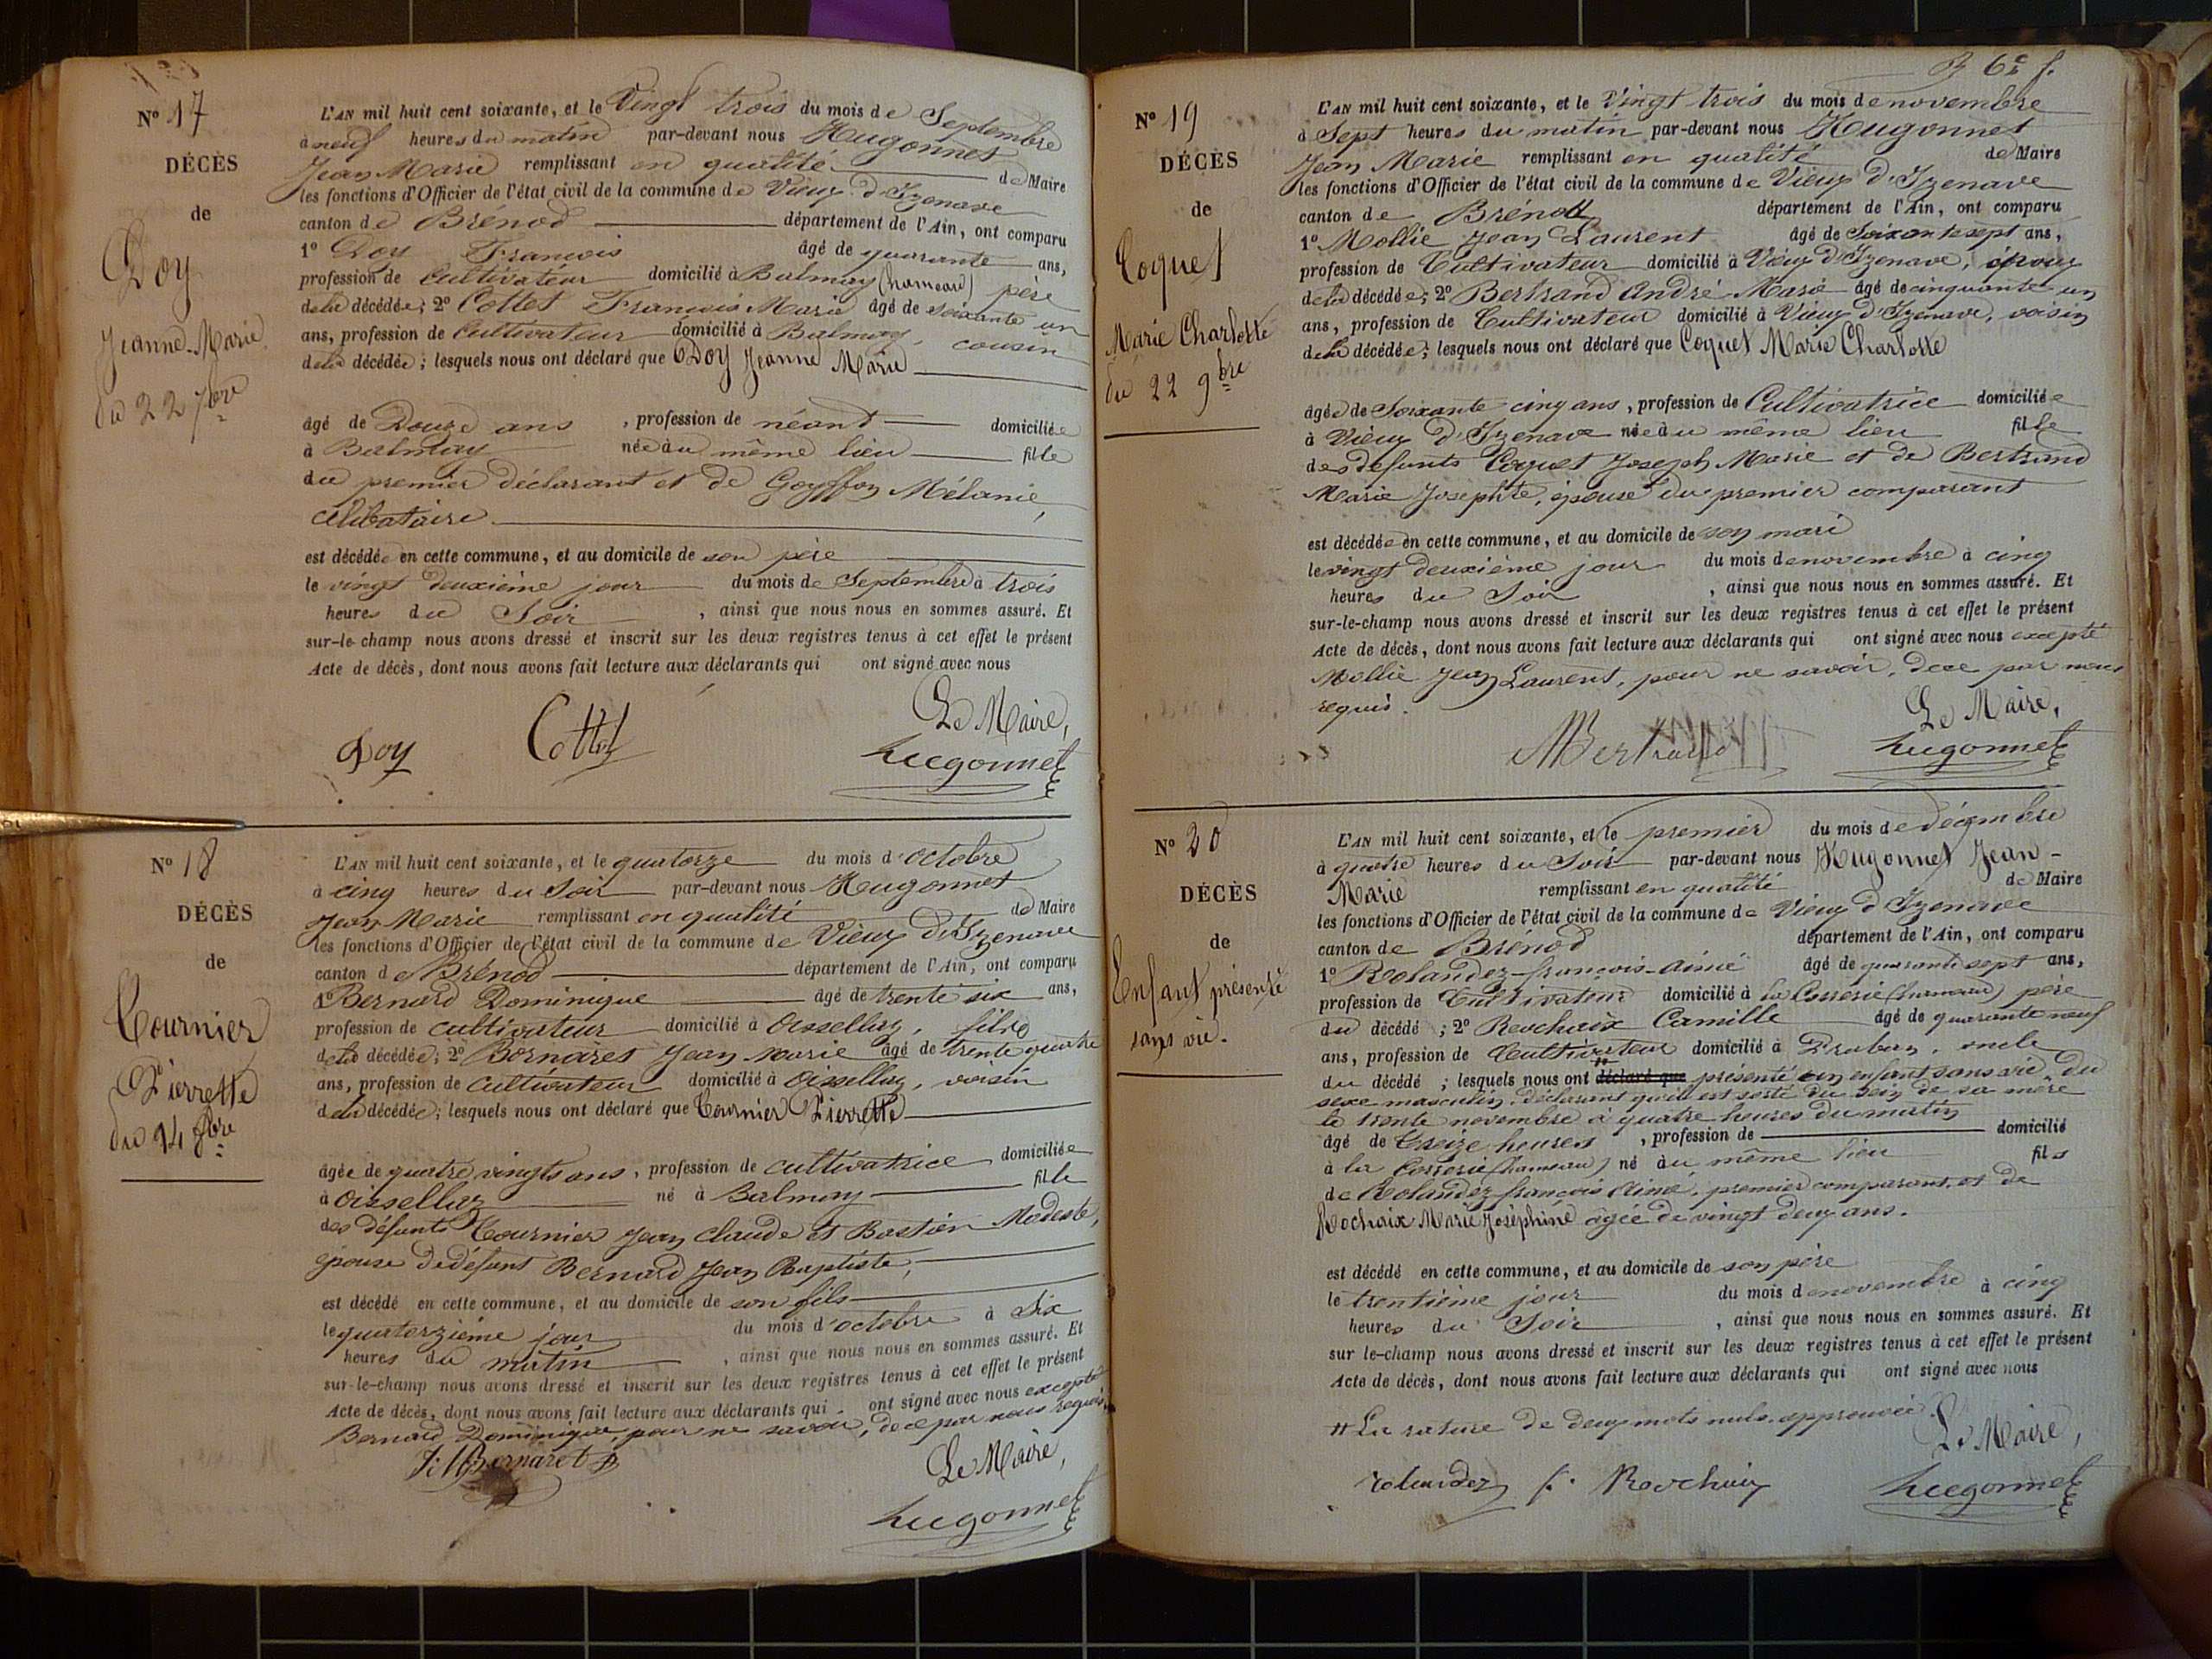 Nº 17
DÉCÈS
de
Doy
Jeanne-Marie
du 22 7bre
L'AN mil huit cent soixante, et le Vingt trois du mois de Septembre
à neuf heures du matin par-devant nous Hugonnet
Jean Marie remplissant en qualité de Maire
les fonctions d'Officier de l'état civil de la commune de Vieux d'Izenave
canton de Brenod département de l'Ain, ont comparu
1º Doy François âgé de quarante ans,
profession de Cultivateur domicilié à Balmay (hameau) père
de la décédée; 2º Cottet François Marie âgé de soixante un
ans, profession de Cultivateur domicilié à Balmay, cousin
de la décédée; lesquels nous ont déclaré que Doy Jeanne Marie
âgé de Douze ans, profession de néant domiciliée
à Balmay née au même lieu fille
du premier déclarant et de Goyffon Mélanie,
célibataire
est décédée en cette commune, et au domicile de son père
le vingt deuxième jour du mois de Septembre à trois
heures du Soir, ainsi que nous nous en sommes assuré. Et
sur-le-champ nous avons dressé et inscrit sur les deux registres tenus à cet effet le présent
Acte de décès, dont nous avons fait lecture aux déclarants qui ont signé avec nous
Le Maire,
Doy Cottet hugonnet
Nº 18
DÉCÈS
de
Tournier
Pierrette
du 14 8bre
L'AN mil huit cent soixante, et le quatorze du mois d'octobre
à cinq heures du Soir par-devant nous Hugonnet
Jean Marie remplissant en qualité de Maire
les fonctions d'Officier de l'état civil de la commune de Vieux d'Izenave
canton de Brénod département de l'Ain, ont comparu
1º Bernard Dominique âgé de trente six ans,
profession de cultivateur domicilié à Oisselaz, fils
de la décédée; 2º Bornaret Jean Marie âgé de trente quatre
ans, profession de Cultivateur domicilié à Oisselaz, voisin
de la décédée; lesquels nous ont déclaré que Tournier Pierrette
âgée de quatre vingts ans, profession de cultivatrice domiciliée
à Oisselaz né à Balmay fille
des défunts Tournier Jean Claude et Bastien Modeste,
épouse de défunt Bernard Jean Baptiste,
est décédé en cette commune, et au domicile de son fils
le quatorzième jour du mois d'octobre à Six
heures du matin, ainsi que nous nous en sommes assuré. Et
sur-le-champ nous avons dressé et inscrit sur les deux registres tenus à cet effet le présent
Acte de décès, dont nous avons fait lecture aux déclarants qui ont signé avec nous excepté
Bernard Dominique, pour ne savoir, de ce par nous requis.
Le Maire,
hugonnet
Nº 19
DÉCÈS
de
Coquet
Marie Charlotte
du 22 9bre
L'AN mil huit cent soixante, et le Vingt trois du mois de novembre
à Sept heures du matin par-devant nous Hugonnet
Jean Marie remplissant en qualité de Maire
les fonctions d'Officier de l'état civil de la commune de Vieux d'Izenave
canton de Brénod département de l'Ain, ont comparu
1º Mollie Jean Laurent âgé de Soixante sept ans,
profession de Cultivateur domicilié à Vieux d'Izenave, époux
de la décédée; 2º Bertrand André Marie âgé de cinquante un
ans, profession de Cultivateur domicilié à Vieux d'Izenave, voisin
de la décédée; lesquels nous ont déclaré que Coquet Marie Charlotte
âgée de Soixante cinq ans, profession de Cultivatrice domiciliée
à Vieux d'Izenave née au même lieu fille
des défunts Coquet Joseph Marie et de Bertrand
Marie Josephte, épouse du premier comparant
est décédée en cette commune, et au domicile de son mari
le vingt deuxième jour du mois de novembre à cinq
heures du Soir, ainsi que nous nous en sommes assuré. Et
sur-le-champ nous avons dressé et inscrit sur les deux registres tenus à cet effet le présent
Acte de décès, dont nous avons fait lecture aux déclarants qui ont signé avec nous excepté
Mollie Jean Laurent, pour ne savoir, de ce par nous
requis.
Le Maire,
Bertrand hugonnet
Nº 20
DÉCÈS
de
Enfant présenté
sans vie.
L'AN mil huit cent soixante, et le premier du mois de décembre
à quatre heures du Soir par-devant nous Hugonnet Jean-
Marie remplissant en qualité de Maire
les fonctions d'Officier de l'état civil de la commune de Vieux d'Izenave
canton de Brénod département de l'Ain, ont comparu
1º Rolandez-françois-aimé âgé de quarante sept ans,
profession de Cultivateur domicilié à la Corserie (hameau) père
du décédé; 2º Rochaix Camille âgé de quarante neuf
ans, profession de Cultivateur domicilié à oncle
du décédé; lesquels nous ont déclaré que présenté un enfant sans vie, du
sexe masculin, déclarant qu'il est sorti du sein de sa mère
le trente novembre à quatre heures du matin
âgé de Treize heures, profession de domicilié
à la Corserie (hameau) né au même lieu fils
de Rolandez françois Aimé, premier comparant, et de
Rochaix Marie Joséphine âgée de vingt deux ans.
est décédé en cette commune, et au domicile de son père
le trentième jour du mois de novembre à cinq
heures du Soir, ainsi que nous nous en sommes assuré. Et
sur le-champ nous avons dressé et inscrit sur les deux registres tenus à cet effet le présent
Acte de décès, dont nous avons fait lecture aux déclarants qui ont signé avec nous
# La rature de deux mots nuls approuvée.
Le Maire,
rolandez f. Rochaix hugonnet